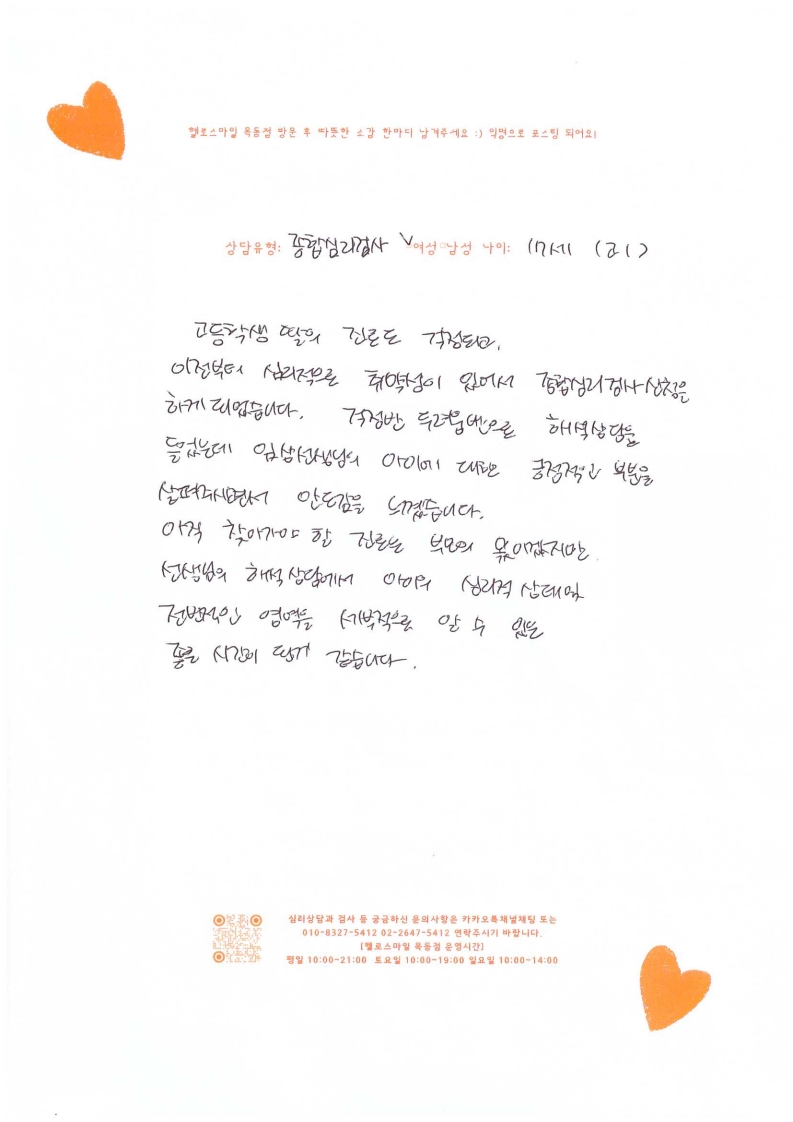 헬로스마일 목동점 방문 후 따뜻한 소감 한마디 남겨주세요 :) 익명으로 포스팅 되어요!
상담유형: 종합심리검사 ✓여성 □남성 나이: 17세 (고1)
고등학생 딸의 진로도 걱정되고,
이전부터 심리적으로 취약성이 있어서 종합심리검사 신청을
하게 되었습니다. 걱정반 두려움반으로 해석상담을
들었는데 임상선생님의 아이에 대한 긍정적인 부분을
살펴주시면서 안도감을 느꼈습니다.
아직 찾아가야 할 진로는 부모의 몫이겠지만
선생님의 해석상담에서 아이의 심리적 상태및
전반적인 영역을 세부적으로 알 수 있는
좋은 시간이 된거 같습니다.
심리상담과 검사 등 궁금하신 문의사항은 카카오톡채널채팅 또는
010-8327-5412 02-2647-5412 연락주시기 바랍니다.
[헬로스마일 목동점 운영시간]
평일 10:00~21:00 토요일 10:00~19:00 일요일 10:00~14:00